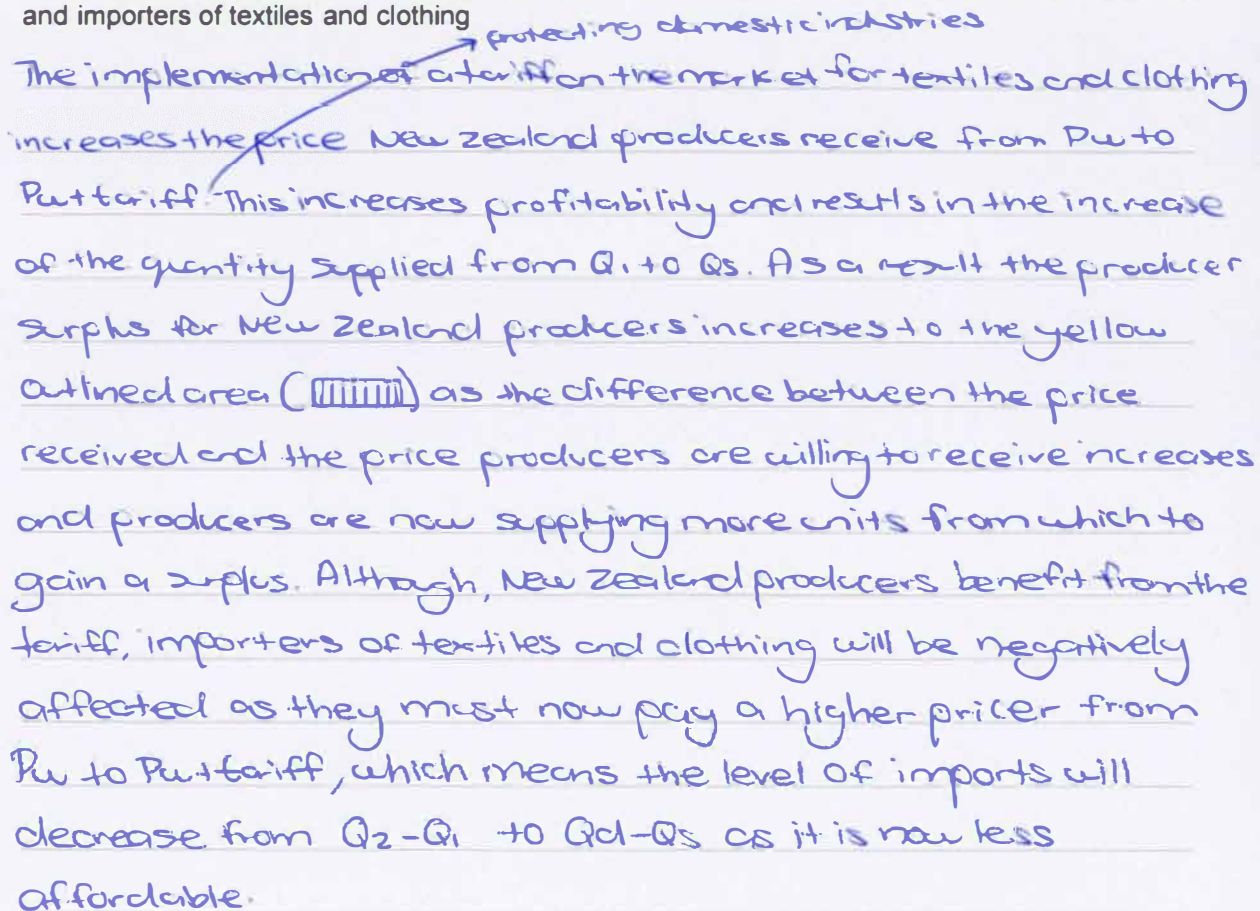 and importers of textiles and clothing
protecting domestic industries
The implementation of a tariff on the market for textiles and clothing
increases the price New Zealand producers receive from Pw to
Pw+tariff. This increases profitability and results in the increase
of the quantity supplied from Q1 to Qs. As a result the producer
surplus for New Zealand producers increases to the yellow
outlined area ( ) as the difference between the price
received and the price producers are willing to receive increases
and producers are now supplying more units from which to
gain a surplus. Although, New Zealand producers benefit from the
tariff, importers of textiles and clothing will be negatively
affected as they must now pay a higher pricer from
Pw to Pw+tariff, which means the level of imports will
decrease from Q2-Q1 to Qd-Qs as it is now less
affordable.